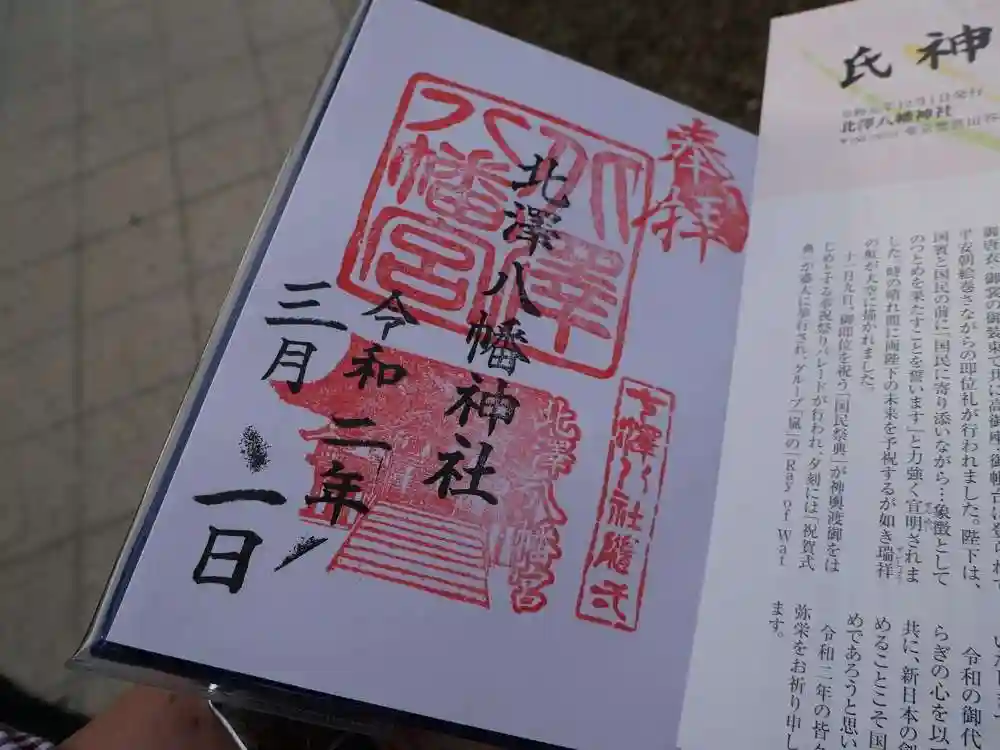 奉拝
八幡宮
北澤
北澤八幡神社
令和二年
三月
一日
北澤八幡宮
神
氏
北澤八幡神社
平安朝絵巻さながらの即位礼が行われました。陛下は、
国賓と国民の前に「国民に寄り添いながら…象徴として
のつとめを果たすことを誓います」と力強く宣明されま
した。時の晴れ間に両陛下の未来を予祝するが如き瑞祥
の虹が大空に描かれました。
十一月九日、御即位を祝う「国民祭典」が神輿渡御をは
じめとする奉祝祭りパレードが行われ、夕刻には「祝賀式
典」が盛大に挙行され、グループ「嵐」の「Ray of Wat
令和の御代
らぎの心を以
共に、新日本の
めることこそ国
めであろうと思い
令和二年の皆
弥栄をお祈り申し
ます。